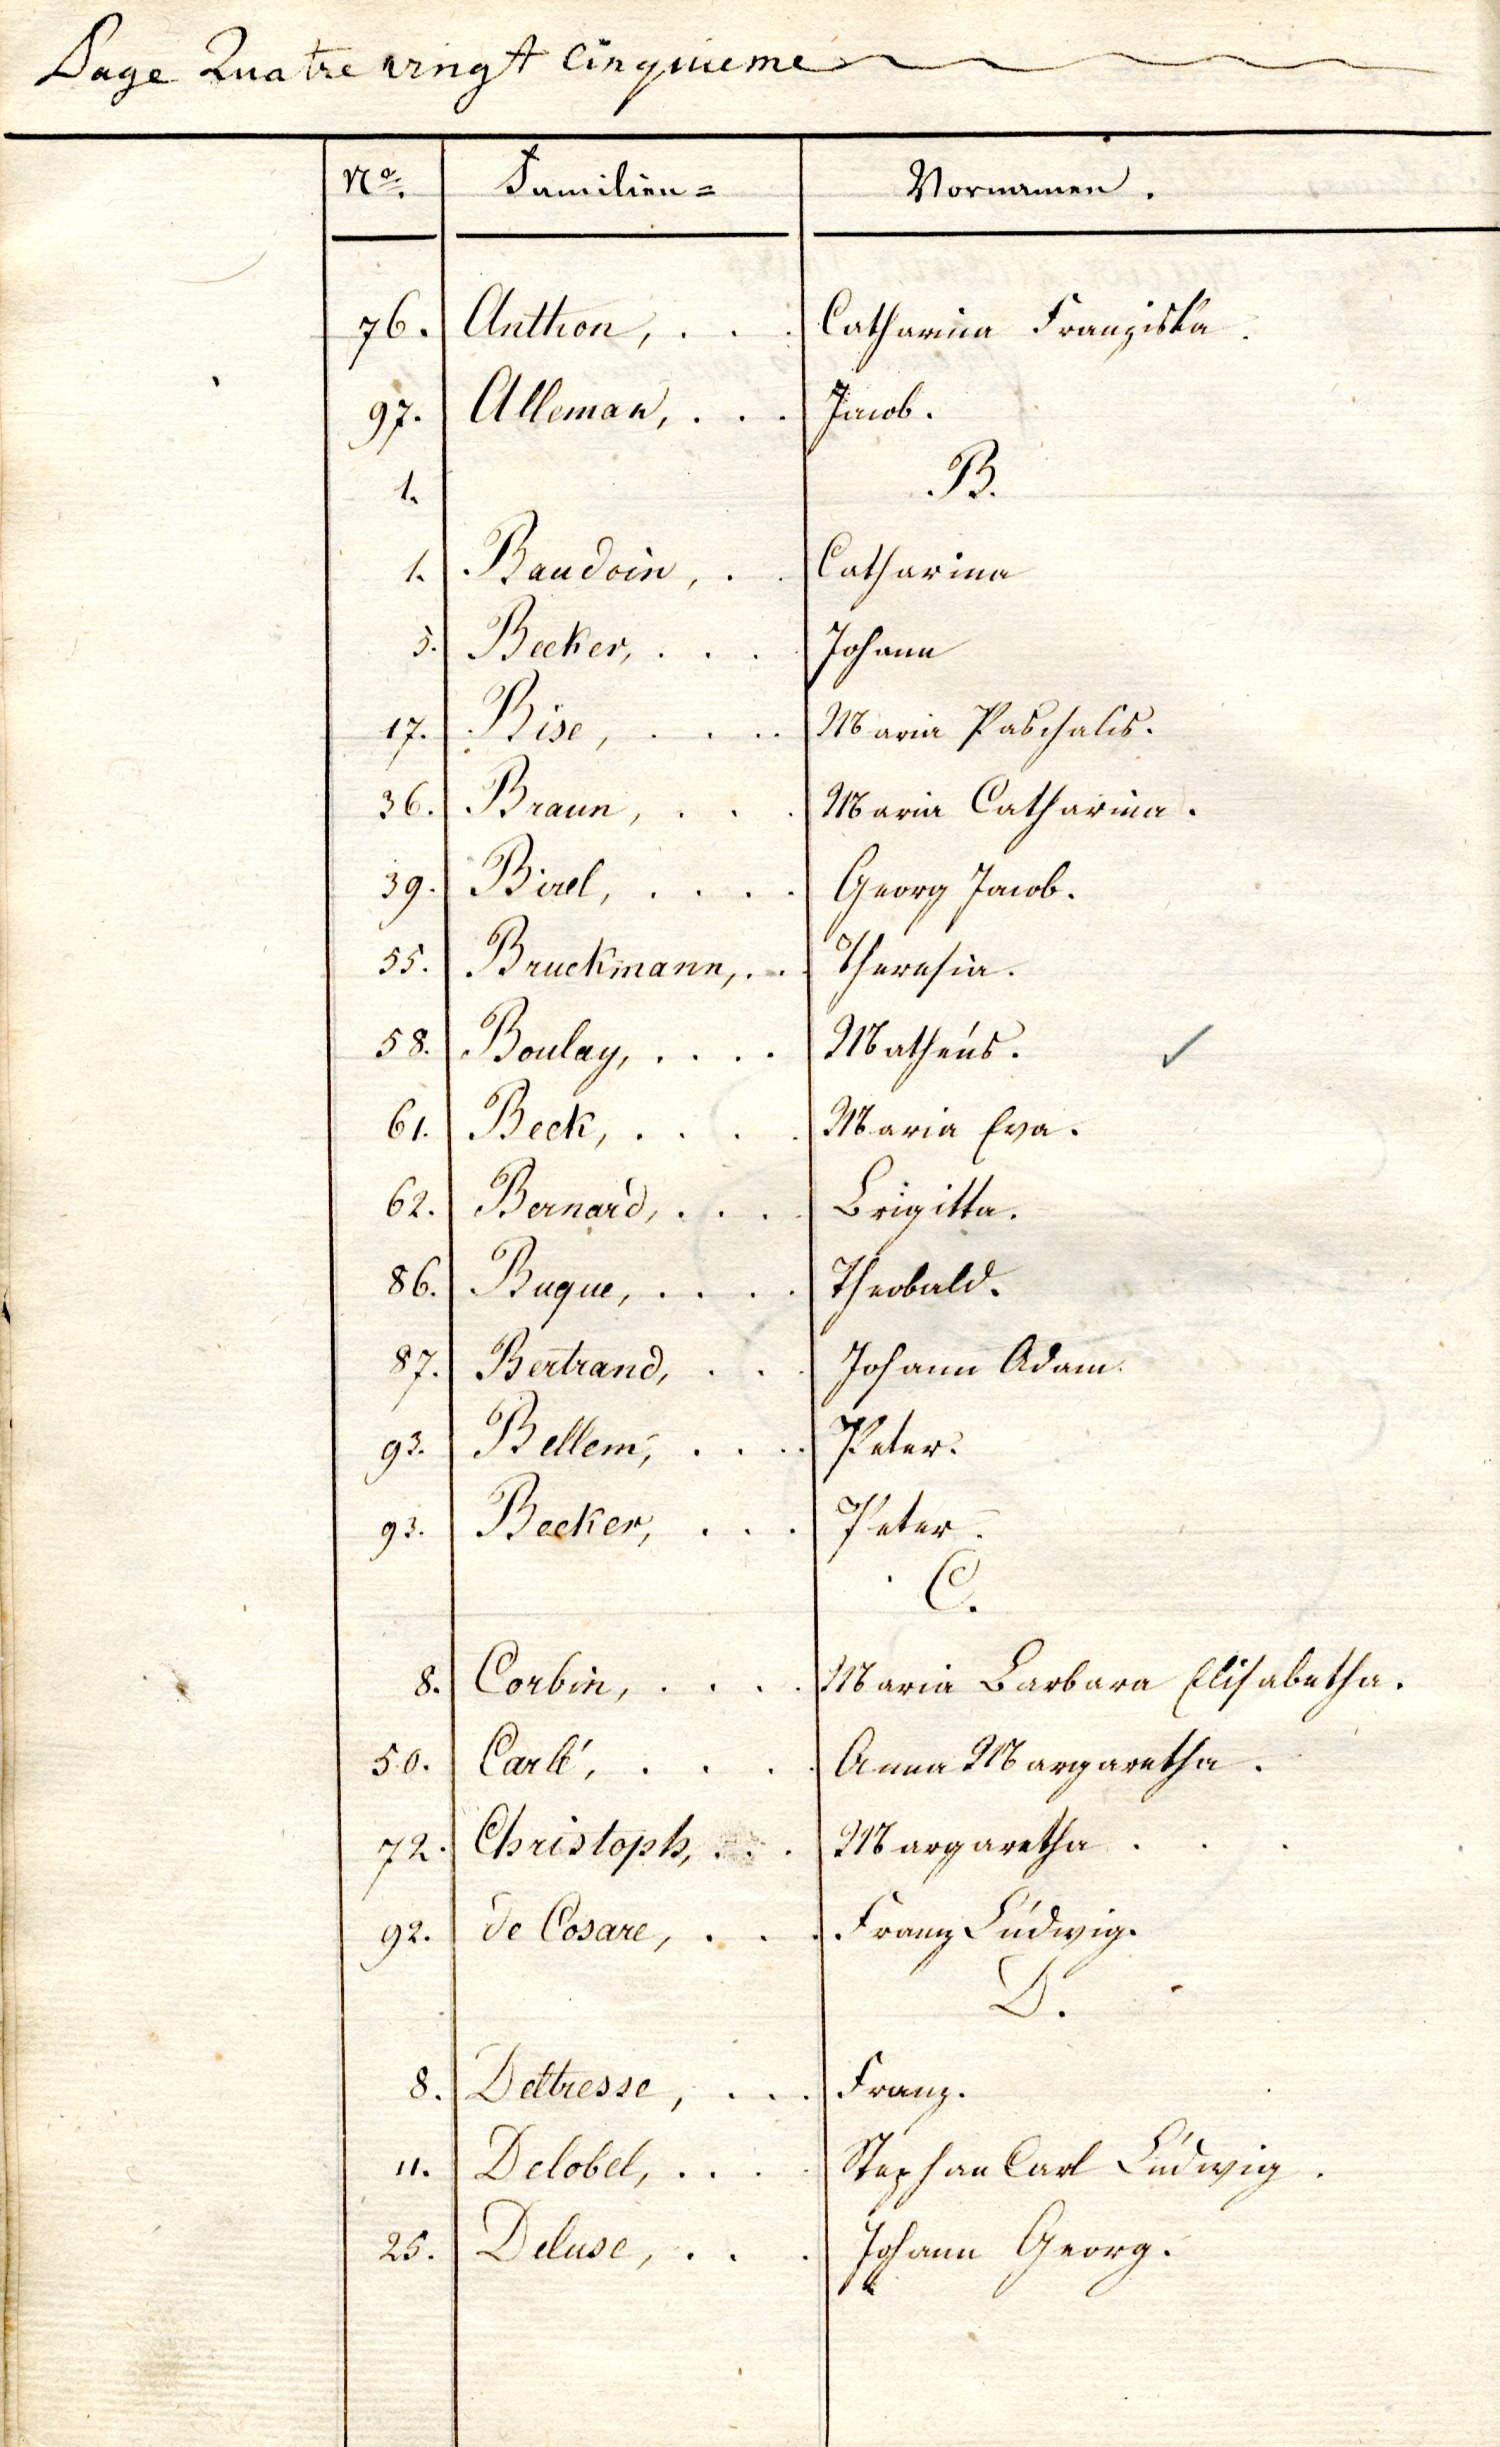 Page Quatre vingt Cinquieme
No. Familien= Vornamen.
76. Anthon, . . . Catharina Franziska.
97. Alleman, . . . Jacob.
1. B.
1. Baudoin, . . Catharina
5. Becker, . . . Johann
17. Bise, . . . . Maria Paschalis.
36. Braun, . . . Maria Catharina.
39. Birel, . . . . Georg Jacob.
55. Bruckmann, . . . Theresia.
58. Boulay, . . . . Matheus.
61. Beck, . . . . Maria Eva.
62. Bernard, . . . . Brigitta.
86. Buque, . . . . Theobald.
87. Bertrand, . . . Johann Adam.
93. Bellem, . . . . Peter.
93. Becker, . . . Peter.
C.
8. Corbin, . . . . Maria Barbara Elisabetha.
50. Carlé, . . . . Anna Margaretha.
72. Christoph, . . . Margaretha . . .
92. de Cosare, . . . Franz Ludwig.
D.
8. Dettresse, . . . Franz.
11. Delobel, . . . . Stephan Carl Ludwig.
25. Deluse, . . . Johann Georg.